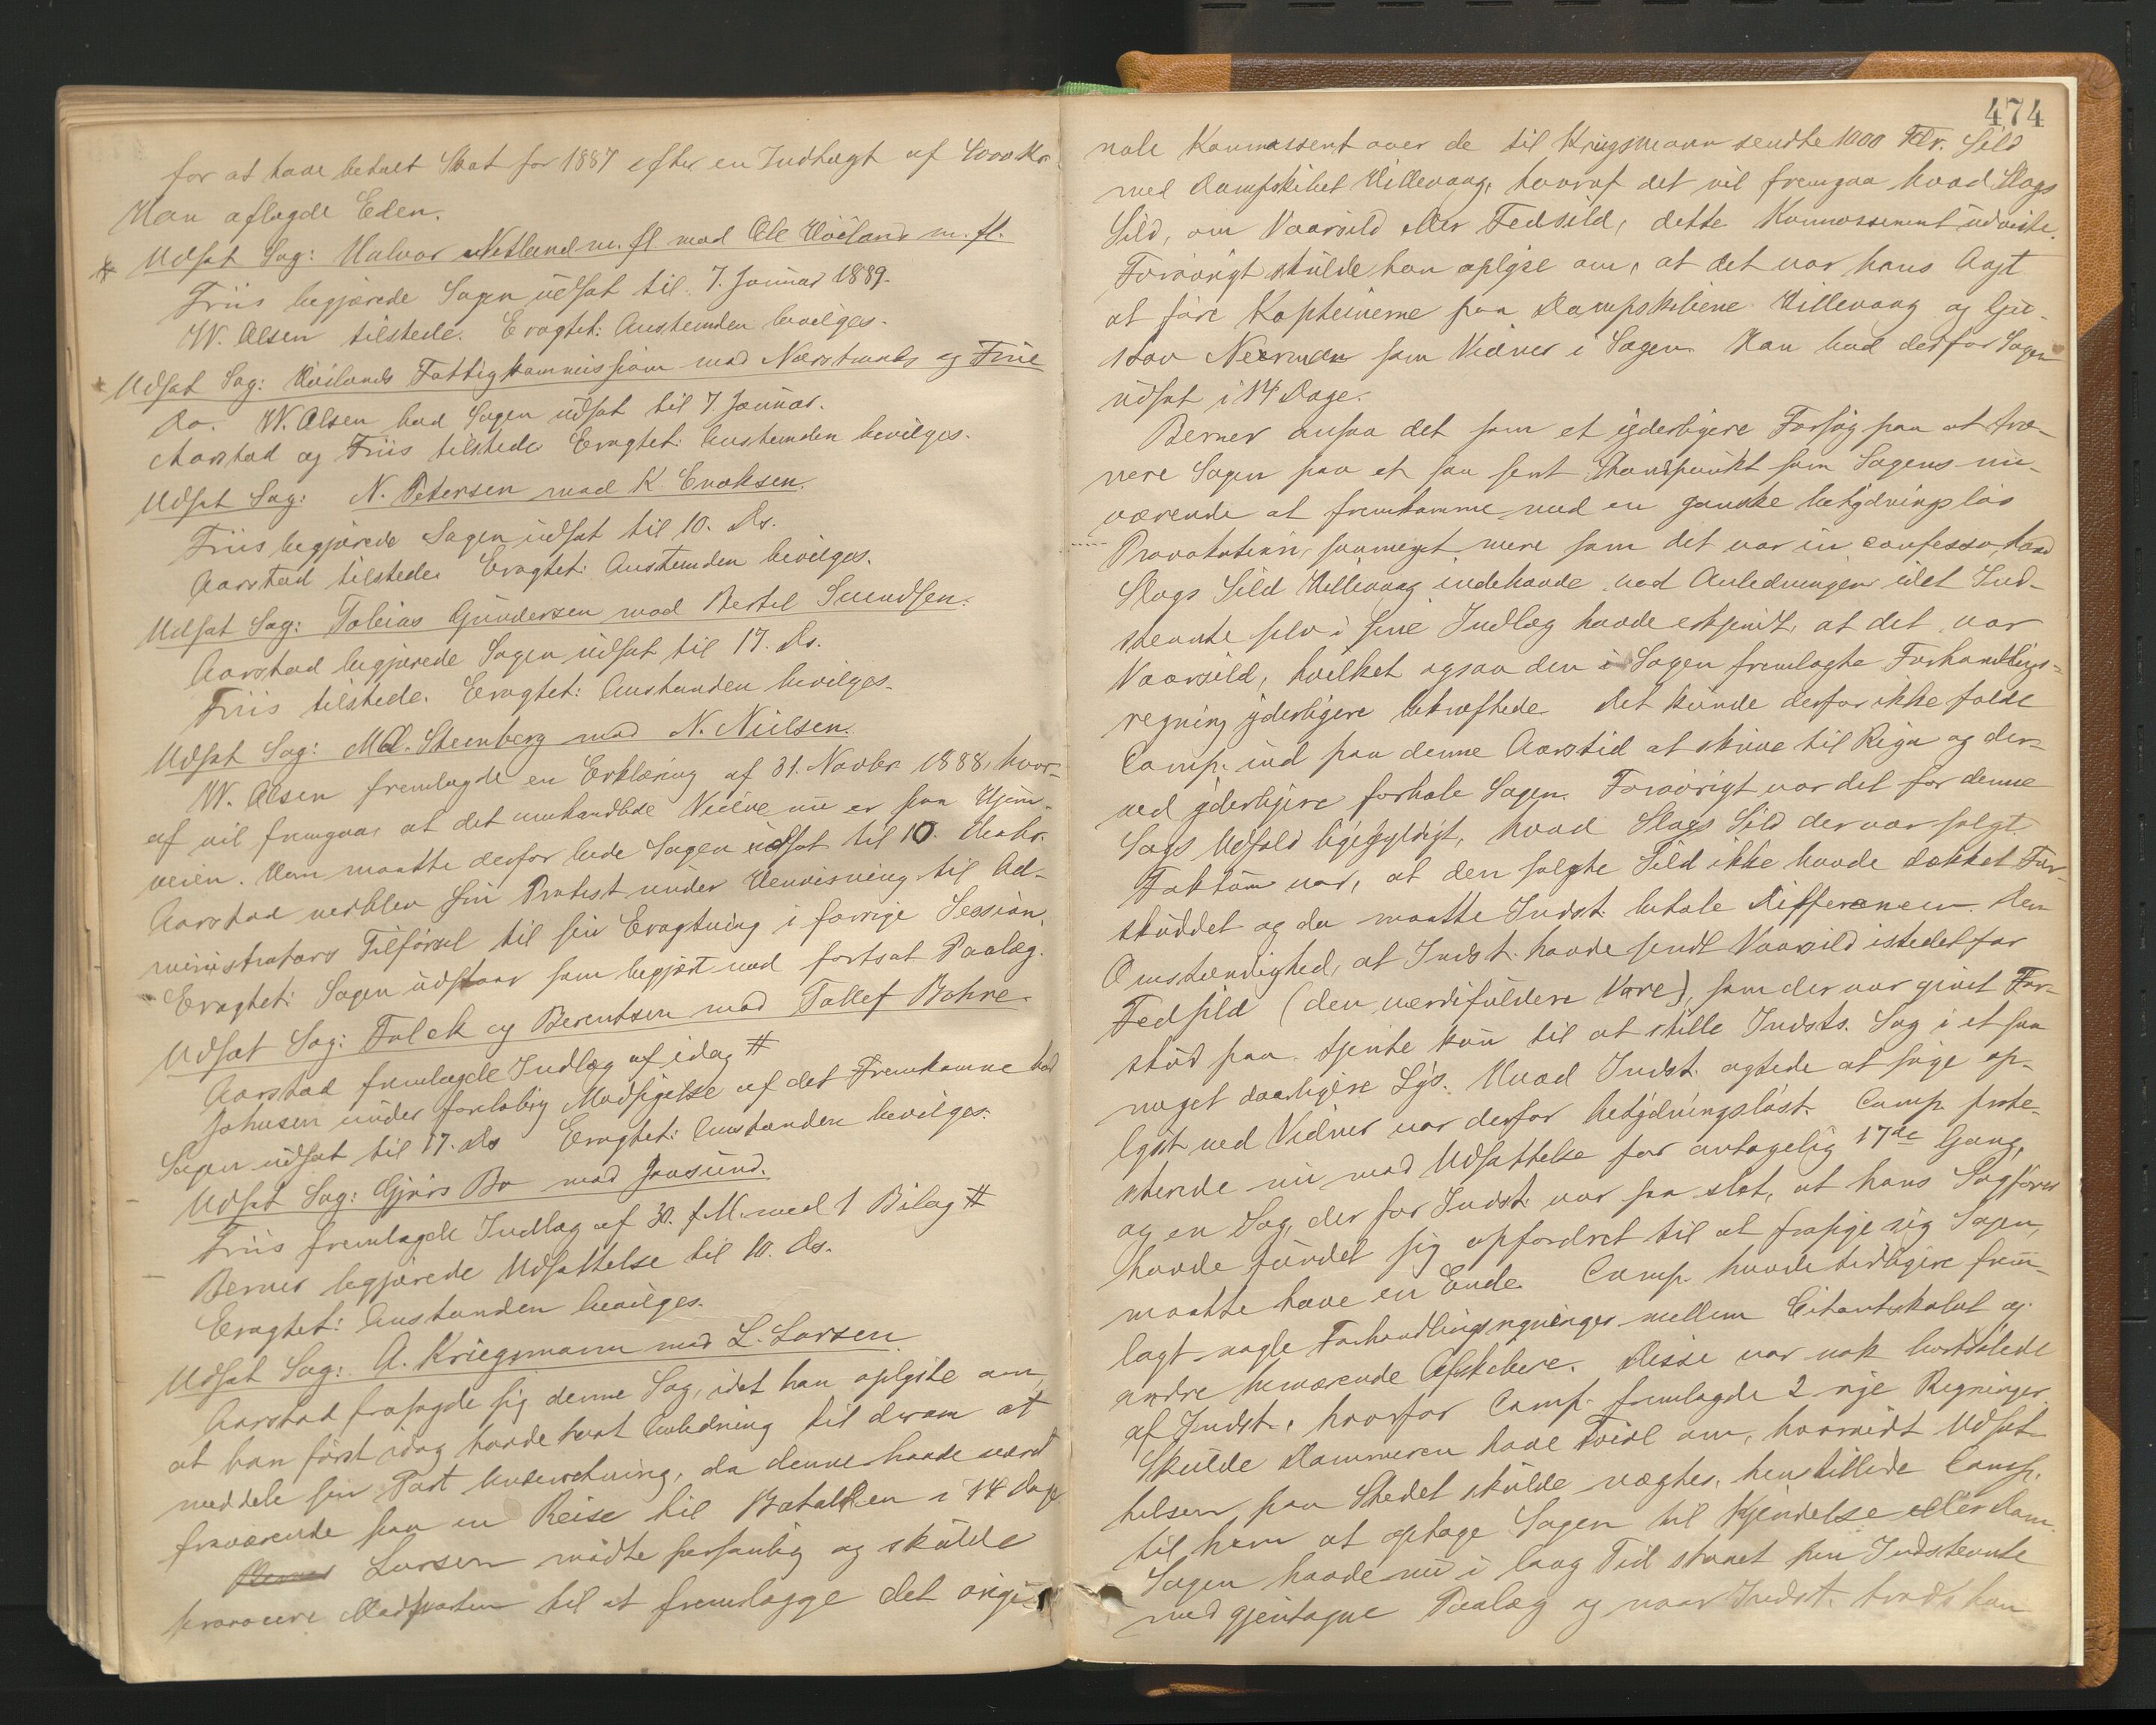 for at have betalt Skat for 1887 efter en Indtægt af 4000 Kr.
Han aflagde Eden.
# Udsat Sag: Halvor Netland m. fl mod Ole Höiland m. fl.
Friis begjærede Sagen udsat til 7. Januar 1889.
W. Olsen tilstede. Eragtet: Anstanden bevilges.
* Udsat Sag: Höilands Fattigkommission mod Nærstrands og Friis
Do. W. Olsen bad Sagen udsat til 7. Januar.
Aarstad og Friis tilstede Eragtet: Anstanden bevilges.
Udsat Sag: N. Petersen mod K. Enoksen.
Friis begjærede Sagen udsat til 10. Ds.
Aarstad tilstede. Eragtet: Anstanden bevilges.
Udsat Sag: Tobias Gundersen mod Bertel Svendsen.
Aarstad begjærede Sagen udsat til 17. Ds.
Friis tilstede. Eragtet: Anstanden bevilges.
Udsat Sag: M. A. Steenberg mod N. Nielsen.
W. Olsen fremlagde en Erklæring af 31. Novbr. 1888, hvor-
af vil fremgaa, at det omhandlede Vidne nu er paa Hjem-
veien. Han maatte derfor bede Sagen udsat til 10. Marts.
Aarstad nedlagde sin Protest under Henvisning til Ad-
ministrators Tilförsel til sin Eragtning i forrige Session.
Eragtet: Sagen udstaar som begjært med fortsat Paalæg.
Udsat Sag: Falck og Berentsen mod Tollef Bohne.
Aarstad fremlagde Indlæg af idag #
Johnsen under foreløbig Modsigelse af det Fremkomne bad
Sagen udsat til 17. Ds Eragtet: Anstanden bevilges.
Udsat Sag: Gjörs Bo mod Jaasund.
Friis fremlagde Indlæg af 30. f. M. med 1 Bilag #
Berner begjærede Udsættelse til 10. Ds.
Eragtet: Anstanden bevilges.
Udsat Sag: A. Kriegsmann mod L. Larsen.
Aarstad frasagde sig denne Sag, idet han oplyste om,
at han först idag havde havt Anledning til derom at
meddele sin Part Underretning, da denne havde været
fraværende paa en Reise til Batalden i 14 Dage
Larsen mödte personlig og skulde
provocere Modparten til at fremlægge det origi-
474
nale Konnossent over de til Kriegsmann sendte 1000 Tdr. Sild
med Dampskibet Hillevaag, hvoraf det vil fremgaa hvad Slags
Sild, om Vaarsild eller Fedsild, dette Konnossement udviste.
Forövrigt skulde han oplyse om, at det var hans Agt
at före Kapteinerne paa Dampskibene Hillevaag og Gu-
stav Neerman som Vidner i Sagen. Han bad derfor Sagen
udsat i 14 Dage.
Berner ansaa det som et yderligere Forsög paa at træ-
nere Sagen paa et saa sent Standpunkt som Sagens nu-
værende at fremkomme med en ganske betydningslös
Provokation, saameget mere som det var in confesso, hvad
Slags Sild Hillevaag indehavde ved Anledningen idet Ind-
stevnte selv i sine Indlæg havde erkjendt, at det var
Vaarsild, hvilket ogsaa den i Sagen fremlagte Forhandlings-
regning yderligere bekræftede. Det kunde derfor ikke falde
Comp. ind paa denne Aarstid at skrive til Riga og der-
ved yderligere forhale Sagen. Forövrigt var det for denne
Sags Udfald ligegyldigt, hvad Slags Sild der var solgt.
Faktum var, at den solgte Sild ikke havde dækket For-
skuddet og da maatte Indst. betale Differencen. Den
Omstændighed, at Indst. havde sendt Vaarsild istedetfor
Fedsild (den værdifuldere Vare), som der var givet For-
skud paa, tjente kun til at stille Indsts. Sag i et saa
meget daarligere Lys. Hvad Indst. agtede at söge op-
lyst ved Vidner var derfor betydningslöst. Comp. prote-
sterede nu mod Udsættelse for antagelig 17de Gang,
og en Sag, der for Indst. var saa slet, at hans Sagförer
havde fundet sig opfordret til at frasige sig Sagen,
maatte have en Ende. Comp. havde tidligere frem-
lagt nogle Forhandlingsregninger mellem Citantskabet og
andre herværende Afskibere. Disse var nok bortdølede
af Indst., hvorfor Comp. fremlagde 2 nye Regninger.
Skulde Dommeren have Tvivl om, hvorvidt Udsæt-
telsen paa Stedet skulde nægtes, henstillede Comp.
til ham at optage Sagen til Kjendelse eller Dom.
Sagen havde nu i lang Tid staaet hen Indstevnte
med gjentagne Paalæg og naar Indst. trods han